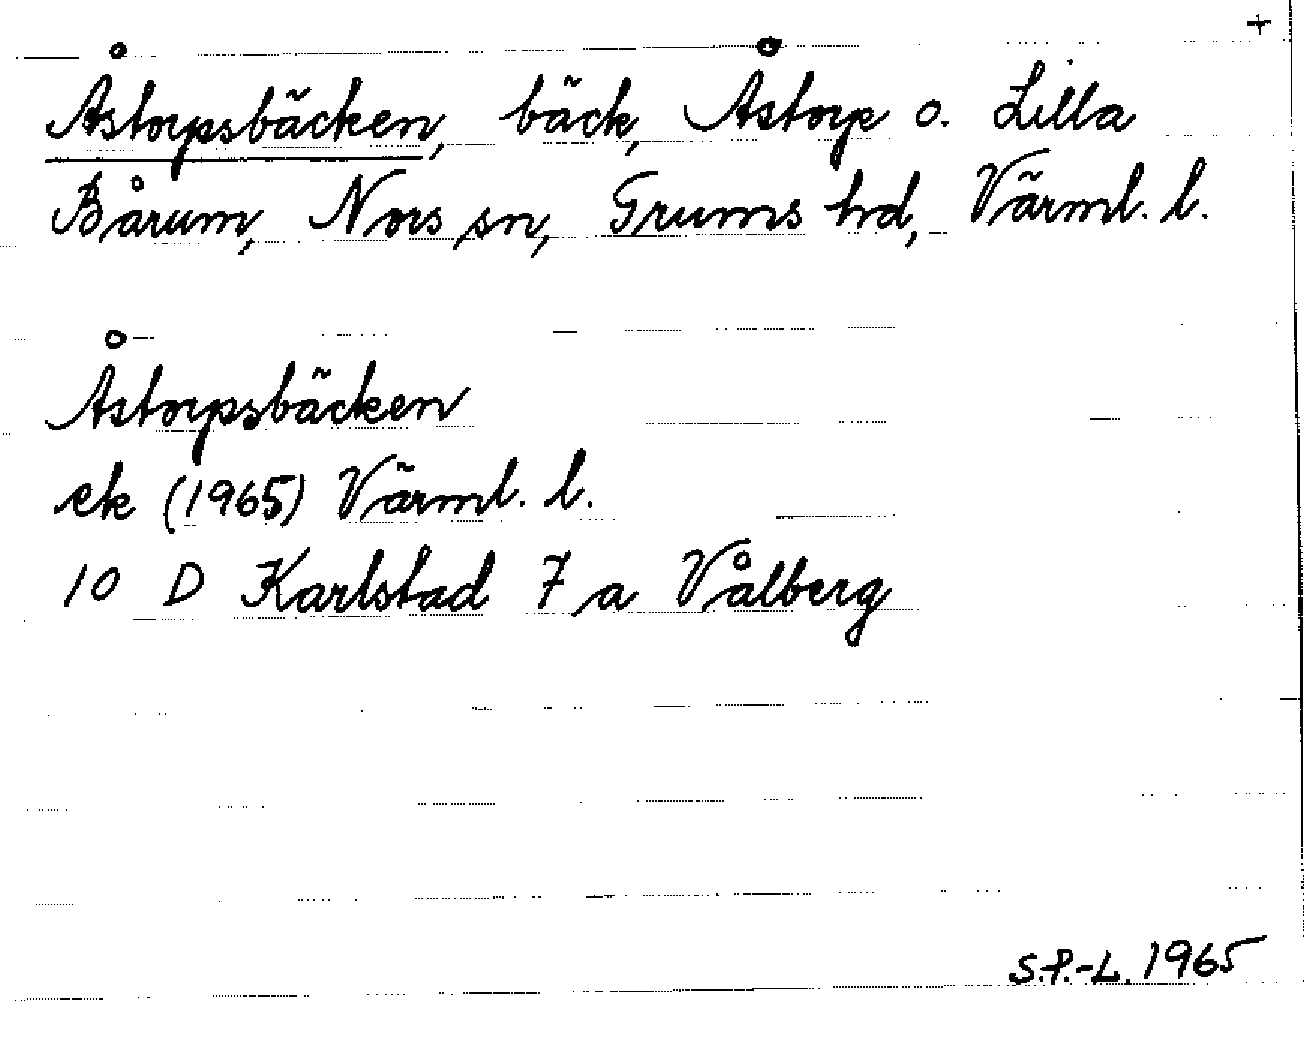 +
Åstorpsbäcken, bäck, Åstorp o. Lilla
Bårum, Nors sn, Grums hd, Värml. l.
Åstorpsbäcken
ek (1965) Värml. l.
10 D Karlstad 7 a Vålberg
S.P.-L. 1965